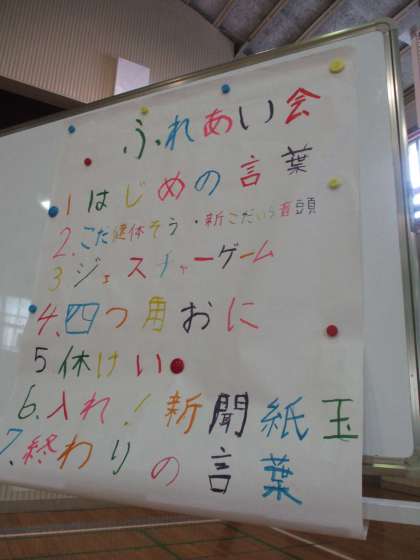 ふれあい会
1はじめの言葉
2.こだ健体そう・新こだいら音頭
3ジェスチャーゲーム
4.四つ角おに
5休けい
6.入れ！新聞紙玉
7.終わりの言葉